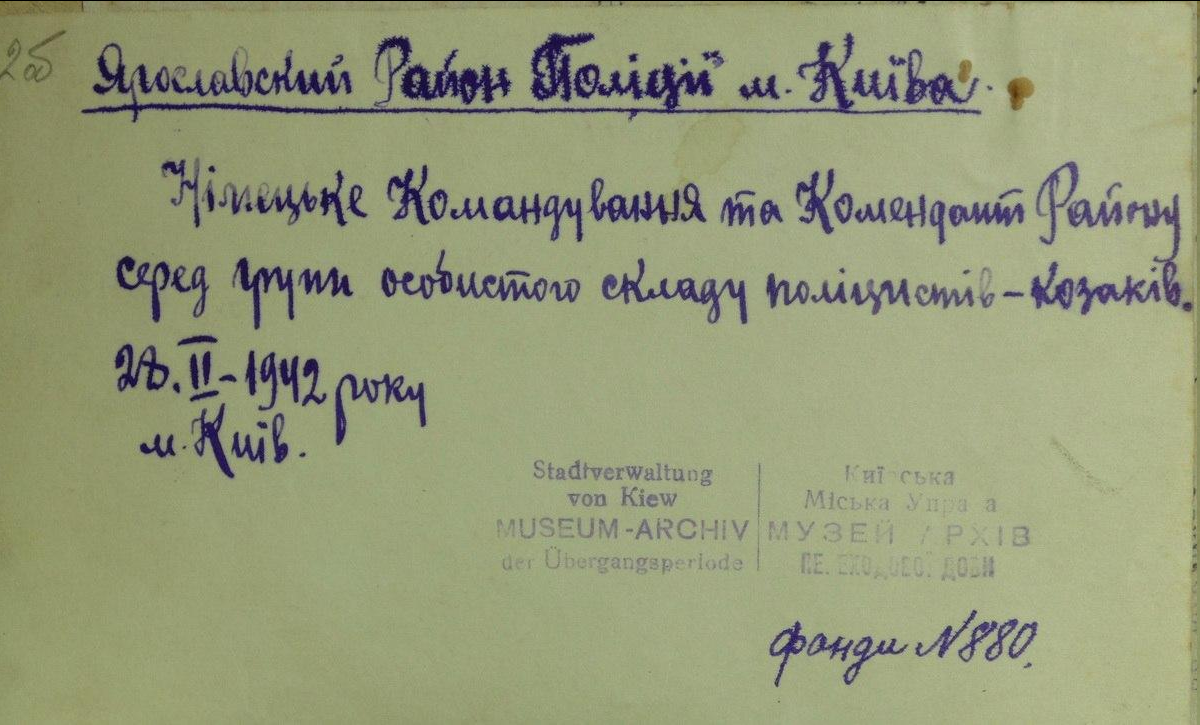 2б
Ярославский Район Поліції м. Київа.
Німецьке Командування та Комендант Району
серед групи особистого складу поліцистів-козаків.
28.II-1942 року
м. Київ.
Stadtverwaltung
von Kiew
MUSEUM-ARCHIV
der Übergangsperiode
Київська
Міська Управа
МУЗЕЙ АРХІВ
ПЕРЕХОДОВОЇ ДОБИ
фонди N 880.